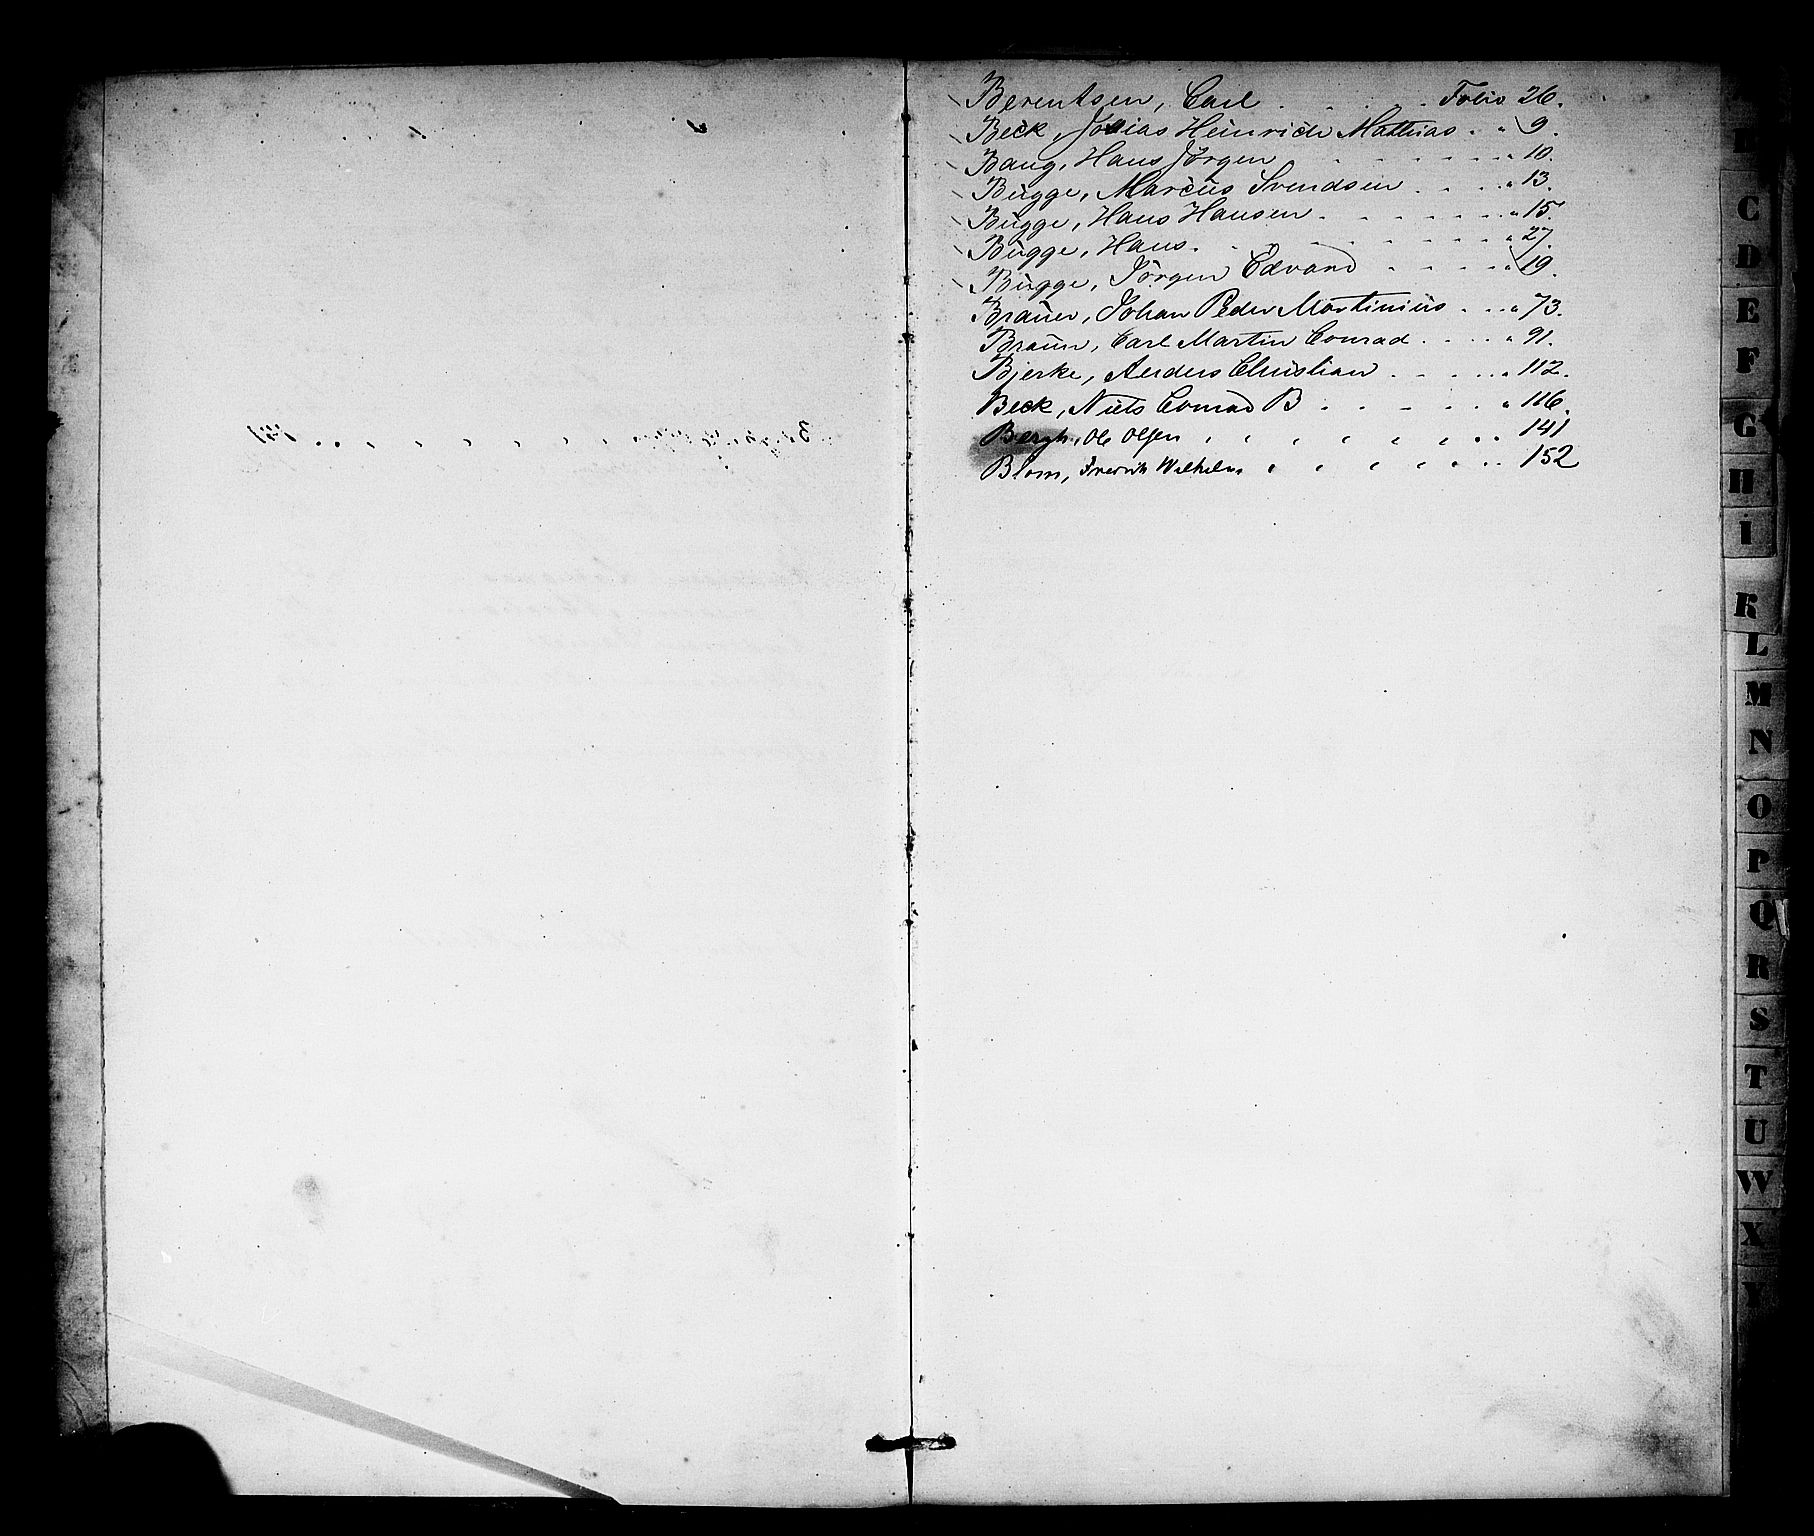 Berentsen, Carl . . . . Folio 26.
Beck, Josias Heinrich Mathias . " 9.
Baug, Hans Jörgen . . . . . . " 10.
Bugge, Marcus Svendsen . . . . " 13.
Bugge, Hans Hansen . . . . . . " 15.
Bugge, Hans . . . . . . . " 27.
Bugge, Jörgen Edvard . . . . " 19.
Brauer, Johan Peder Martinius . . . " 73.
Braun, Carl Martin Conrad . . . . " 91.
Bjerke, Anders Christian . . . . " 112.
Beck, Niels Conrad B . . . . . " 116.
Bergh, Ole Olsen , , , , , , . . 141
Blom, Fredrik Wilhelm , , , , , . . 152
C
D
E
F
G
H
I
K
L
M
N
O
P
Q
R
S
T
U
W
X
Y